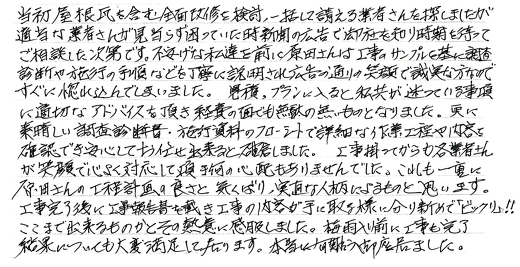 当初屋根瓦を含む全面改修を検討、一括して請える業者さんを探しましたが
適当な業者さんが見当らず困っていた時新聞の広告で御社を知り時期を待って
ご相談した次第です。不安げな私達を前に原田さんは工事のサンプルを基に調査
診断や施行の手順などを丁寧に説明され広告の通りの笑顔で誠実な方なので
すぐに惚れ込んでしまいました。 見積、プランに入ると私共が迷っている事項
に適切なアドバイスを頂き経費の面でも無駄の無いものとなりました。更に
素晴しい調査診断書・施行資料のフローシートで詳細な作業工程や内容を
確認でき安心してお任せ出来ると確信しました。 工事掛ってからも各業者さん
が笑顔で心よく対応して頂き何の心配もありませんでした。これも一重に
原田さんの工程計画の良さと気くばり、実直な人柄によるものと思います。
工事完了後に工事報告書を戴き工事の内容が手に取る様に分り新めて「ビックリ」!!
ここまで出来るものかとその熱意に感服しました。梅雨入り前に工事も完了
結果についても大変満足しております。本当に有難う御座居ました。